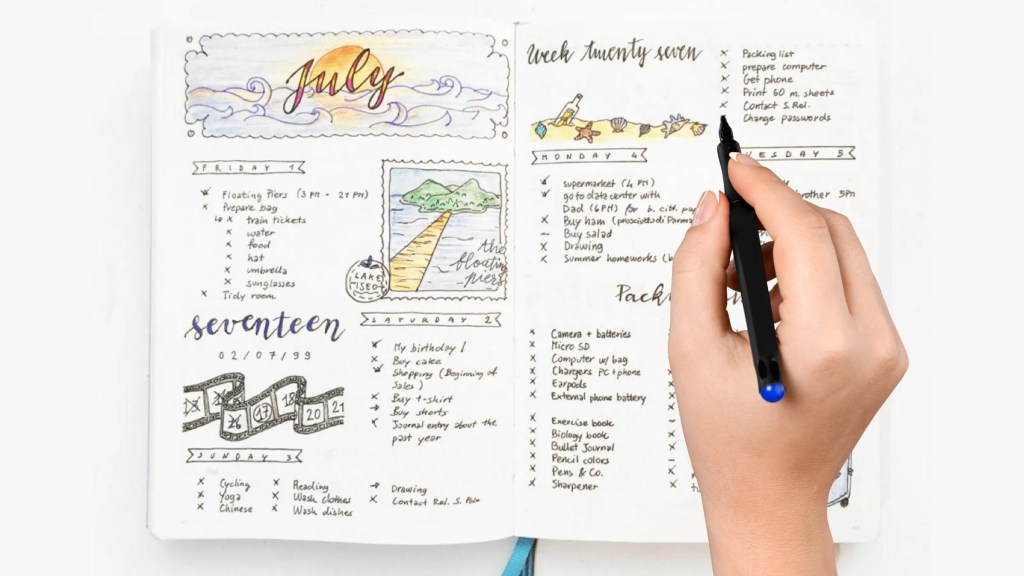 July
FRIDAY 1
Floating Piers (3 PM - 21 PM)
Prepare bag
train tickets
water
food
hat
umbrella
sunglasses
Tidy room
the
floating
piers
LAKE
ISEO
seventeen
02/07/99
16
17
18
20
21
SATURDAY 2
My birthday!
Buy cake
Shopping (Beginning of
Sales)
Buy t-shirt
Buy shorts
Journal entry about the
past year
SUNDAY 3
Cycling
Yoga
Chinese
Reading
Wash clothes
Wash dishes
Drawing
Contact Rel. S.
Week twenty seven
Packing list
prepare computer
Get phone
Print 60 m. sheets
Contact S. Rel.
Change passwords
MONDAY 4
supermarket (4 PM)
go to data center with
Dad (6 PM) for
Buy ham (prosciutto di Parma
Buy salad
Drawing
Summer homeworks
UESDAY 5
brother 5PM
Pack
Camera + batteries
Micro SD
Computer w/ bag
Chargers PC + phone
Earpods
External phone battery
Exercise book
Biology book
Bullet Journal
Pencil colors
Pens & Co.
Sharpener